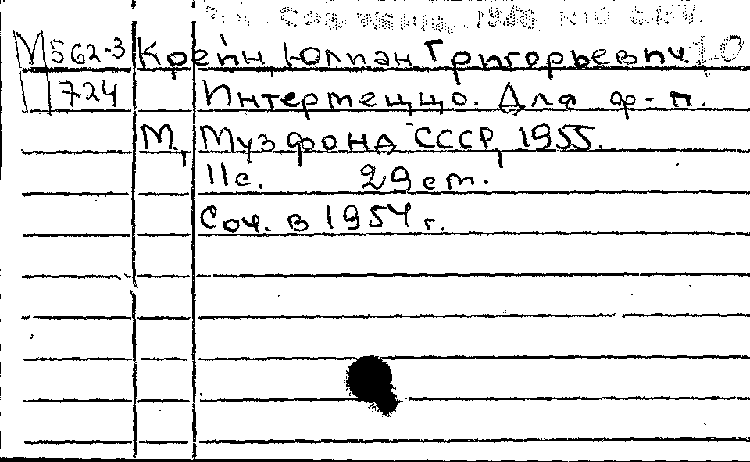 М562-3 Крейн, Юлиан Григорьевич 10
724 Интермеццо. Для ф-п.
М., Музфонд СССР, 1955.
11с. 29см.
Соч. в 1954 г.